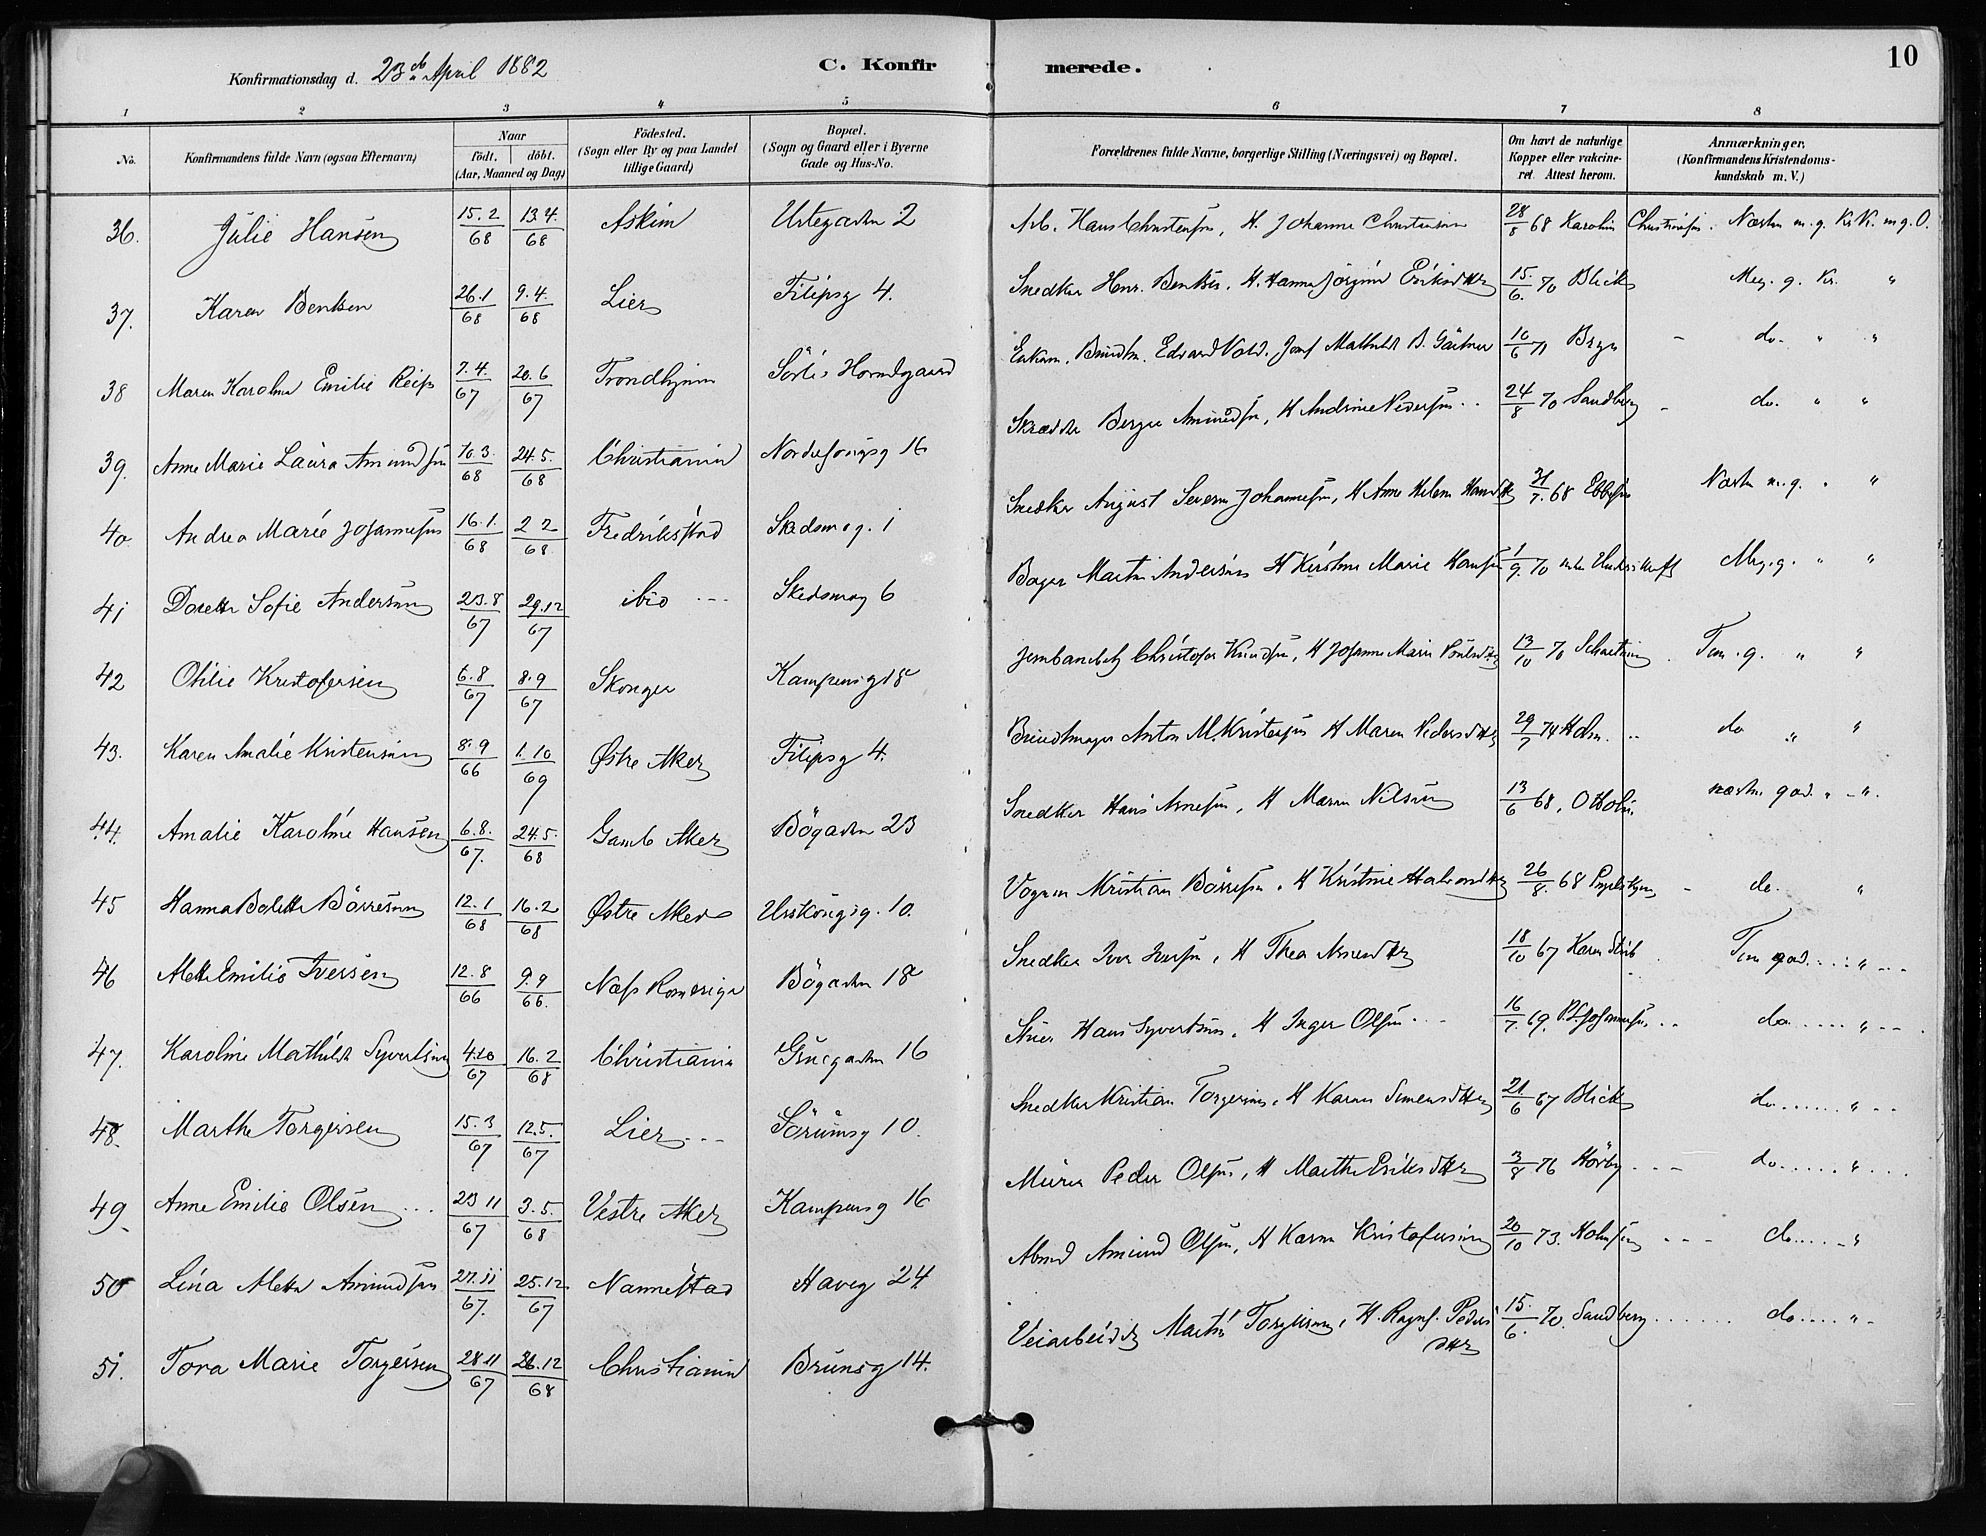 10
Konfirmationsdag d. 23de April 1882
C. Konfirmerede.
1 2 3 4 5 6 7 8
No.
Konfirmandens fulde Navn (ogsaa Efternavn)
Naar
födt. döbt.
(Aar, Maaned og Dag)
Födested.
(Sogn eller By og paa Landet
tillige Gaard)
Bopæl.
(Sogn og Gaard eller i Byerne
Gade og Hus-No.
Forældrenes fulde Navne, borgerlige Stilling (Næringsvei) og Bopæl.
Om havt de naturlige
Kopper eller vakcine-
ret. Attest herom.
Anmærkninger,
(Konfirmandens Kristendoms-
kundskab m. V.)
36. Julie Hansen 15.2/68 13.4./68 Askim Urtegaden 2 Arb. Hans Christensen, H. Johanne Christensen 28/8 68 Karolin Christensen. Næsten m. g. Kr. m g. O.
37. Karen Bentsen 26.1/68 9.4./68 Lier Filipsg 4. Snedker Hans Bentsen, H. Hanna Jörgine 15./6. 70 Blich Meg. g. Kr. "
38 Maren Karoline Emilie Reiss 7.4./67 20.6/67 Trondhjem Edvard Vold. Mathilde B. Gärtner 10/6 71 Brge - do. " "
39. Anne Marie Laura Amundsen 10.3./68 24.5./68 Christiania 16 Skrædder Amundsen, H Andrine Pedersen 24/8 70 Sandberg - do. " "
40 Andrea Marie Johannesen 16.1./68 2 2/68. Fredrikstad Skedsmog. 1 Snedker August Severin Johannesen, H Anne Helene 31/7. 68 Ebbesen Næsten m.g. " "
41 Dorethe Sofie Andersen 23.8/67 29.12/67 ibid --- Skedsmog 6 Bager Martin Andersen H Kirstine Marie Hansen 1/9. 70 Meg.g. " "
42 Othilie Kristofersen 6.8/67 8.9/67 Skonger Kampensg 18 Christofer Knudsen, H Johanne Marie 13/10 70 Tem. g. " "
43. Karen Amalie Kristensen 8.9/66 1.10/69 Østre Aker Filipsg 4. Anton M. Kristensen H Maren Pedersdtr 29/7 74 Holm. .. do " "
44. Amalie Karoline Hansen 6.8./67. 24.5./68 Gamle Aker Bögaden 23 Snedker Hans Arnesen, H Maren Nilsen 13/6 68. næsten god. " - ".
45 Hanna Bolette Börresen 12.1/68 16.2/68 Østre Aker Urskougsg. 10. Vognm Kristian Börresen. H Kristine Halvorsdtr 26/8. 68 - do. "
46 Mette Emilie Iversen 12.8/66 9.9/66. Næs Romerige Bögaden 18 Snedker Iver Iversen, H Thea Arnesdtr 18/10 67 Karen Tem god....."...
47. Karoline Mathilde Syvertsen 4.10/67 16.2/68 Christiania 16 Hans Syvertsen. H Inger Olsen... 16/7. 69. Johannesen... do......"...
48. Marthe Torgersen 15.3/67 12.5./67 Lier... Sörumsg 10. Snedker Kristian Torgersen, H Karen Simensdtr 21/6 67 Blich do......."...
49. Anne Emilie Olsen ... 23 11/67 3.5./68 Vestre Aker Kampensg 16 Murer Peder Olsen, H Marthe Eriksdtr 3/8 76 Hörby..... do......"....
50 Lina Mette Amundsen 27.11/67. 25.12/67 Nannestad Haveg 24 Amund Olsen, H Karen Kristofersen 20/10 73. Holmsen --- do....-"
51. Tora Marie Torgersen 28.11/67 26.12/68 Christiania Brunsg 14. Veiarbeider Martin Torgersen, H. Ragnh. Peders
dtr 15./6. 70. Sandberg....... do....."..